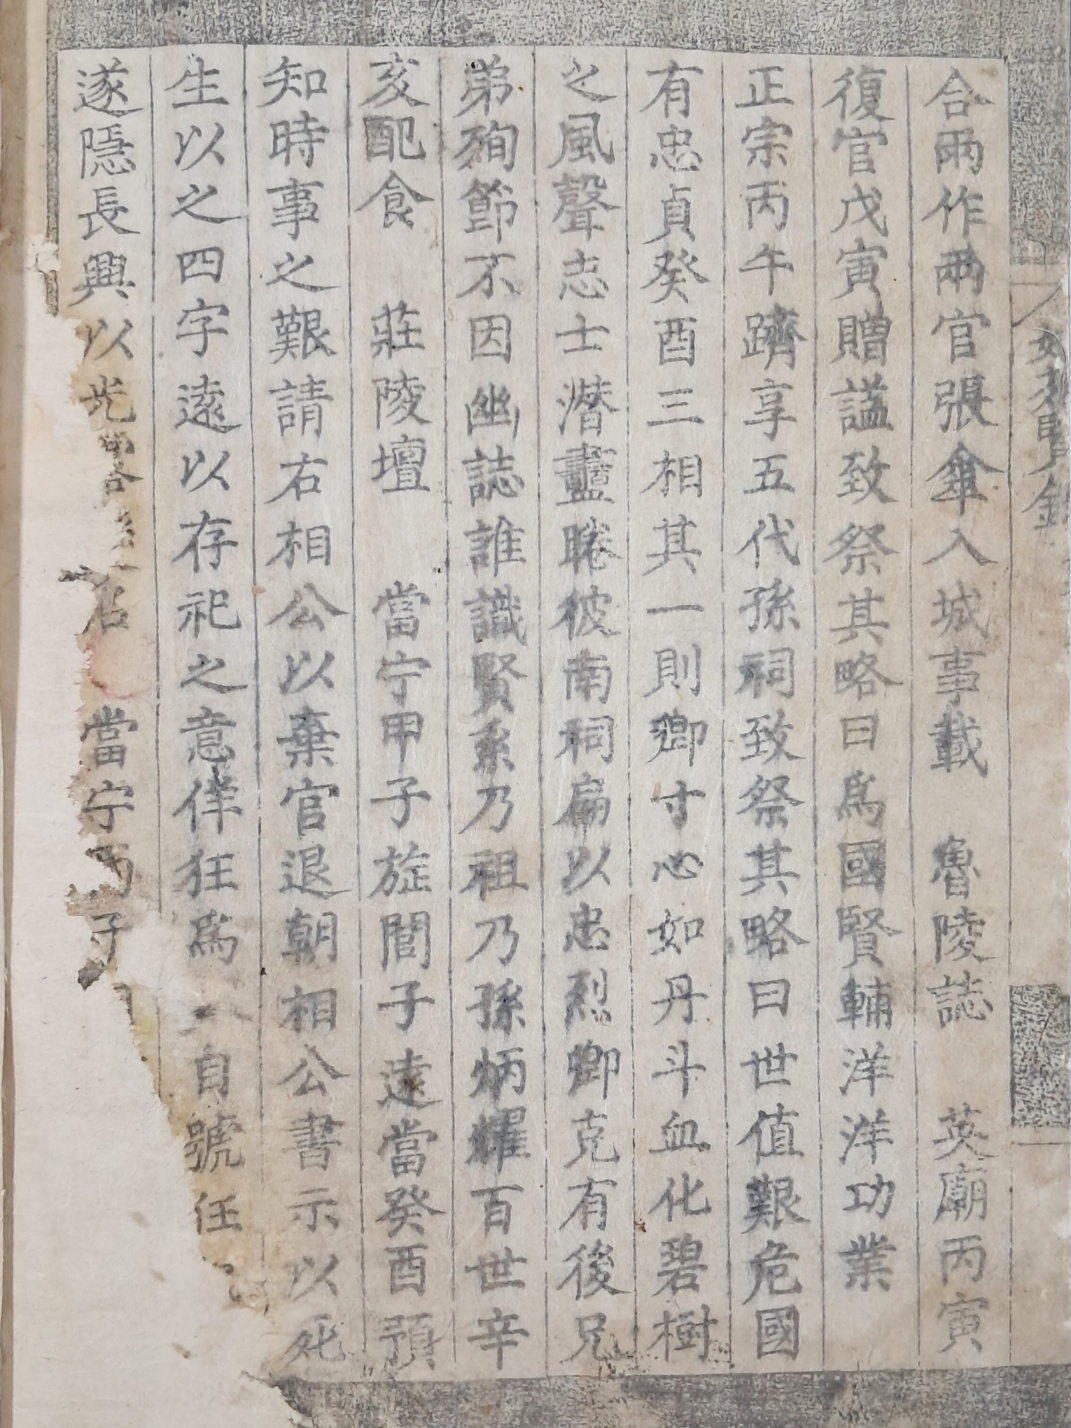 合兩作兩官張傘入城事載　魯陵誌　英廟丙寅
復官戊寅贈謚致祭其略曰爲國賢輔洋洋功業
正宗丙午躋享五代孫祠致祭其略曰世值艱危國
有忠貞癸酉三相其一則卿寸心如丹斗血化碧樹
之風聲志士潛衋睠彼南祠扁以忠烈卿克有後兄
弟殉節不因幽誌誰識賢系乃祖乃孫炳耀百世辛
亥配食　莊陵壇　當宁甲子旌閭子遠當癸酉預
知時事之艱請右相公以棄官退朝相公書示以死
生以之四字遠以存祀之意佯狂爲 自號任
遂隱長興以光 當宁丙子